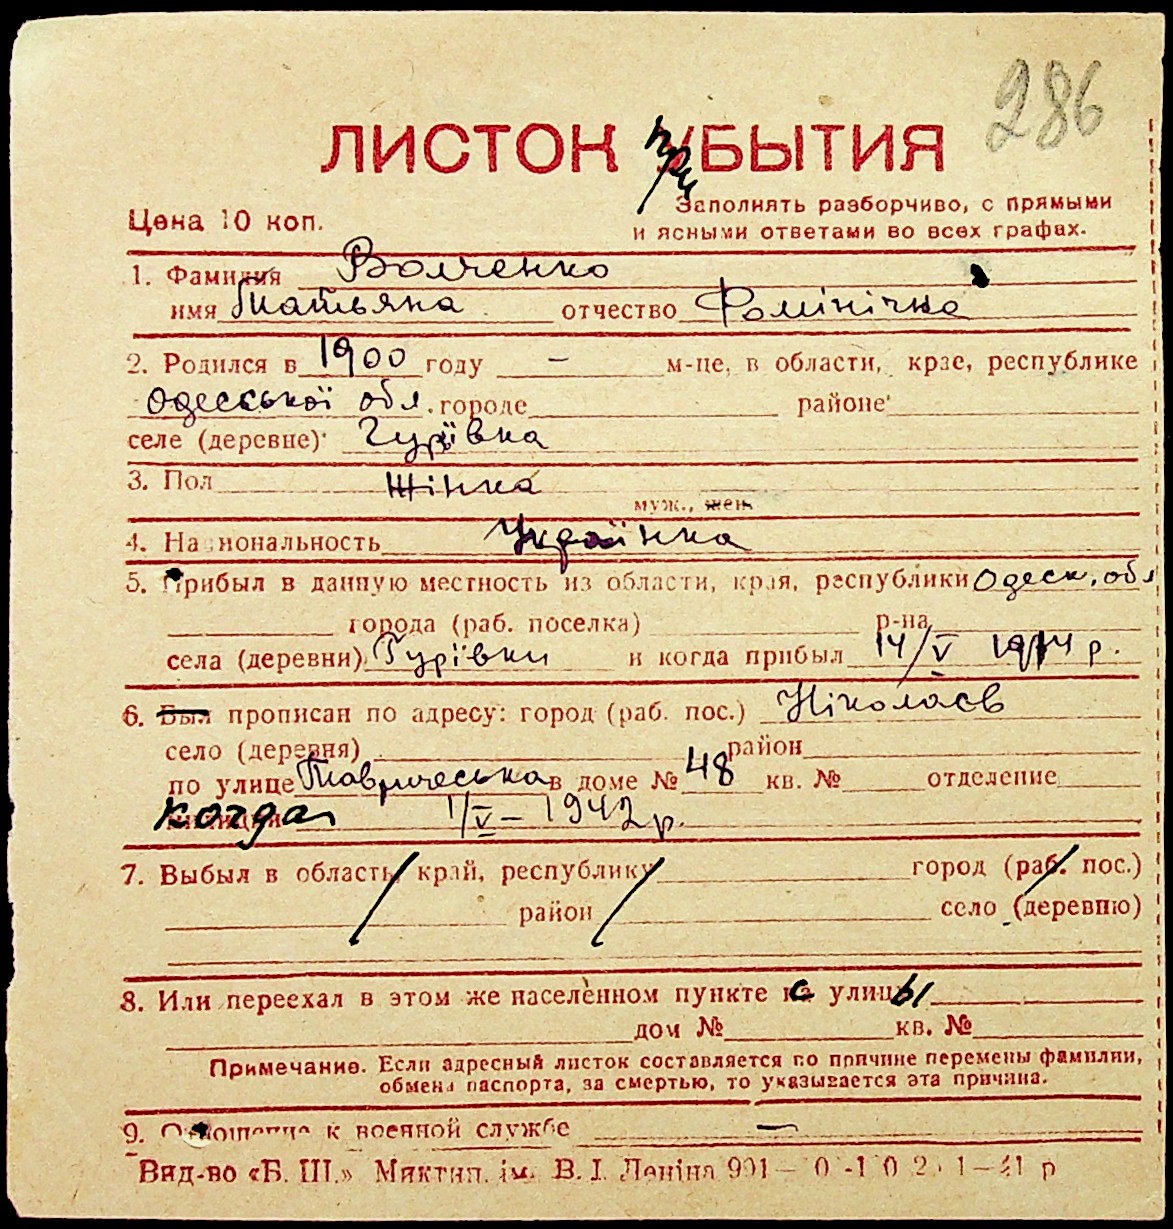 286
ЛИСТОК приБЫТИЯ
Цена 10 коп.
Заполнять разборчиво, с прямыми
и ясными ответами во всех графах.
1. Фамилия Волченко
имя Татьяна отчество Фомінічна
2. Родился в 1900 году – м-це, в области, крае, республике
Одеської обл. городе районе
селе (деревне) Гурівка
3. Пол Жінка
муж., жен.
4. Национальность Українка
5. Прибыл в данную местность из области, края, республики Одеск. обл
города (раб. поселка) р-на
села (деревни) Гурівки и когда прибыл 14/V р.
6. Был прописан по адресу: город (раб. пос.) Ніколаєв
село (деревня) район
по улице Тавричеська в доме № 48 кв. № отделение
когда 1/V – 1942 р.
7. Выбыл в область, край, республику город (раб. пос.)
район село (деревню)
8. Или переехал в этом же населенном пункте с улицы
дом № кв. №
Примечание. Если адресный листок составляется по причине перемены фамилии,
обмена паспорта, за смертью, то указывается эта причина.
9. Отношение к военной службе –
Вид-во «Б. Ш.» Миктип. ім. В. І. Леніна